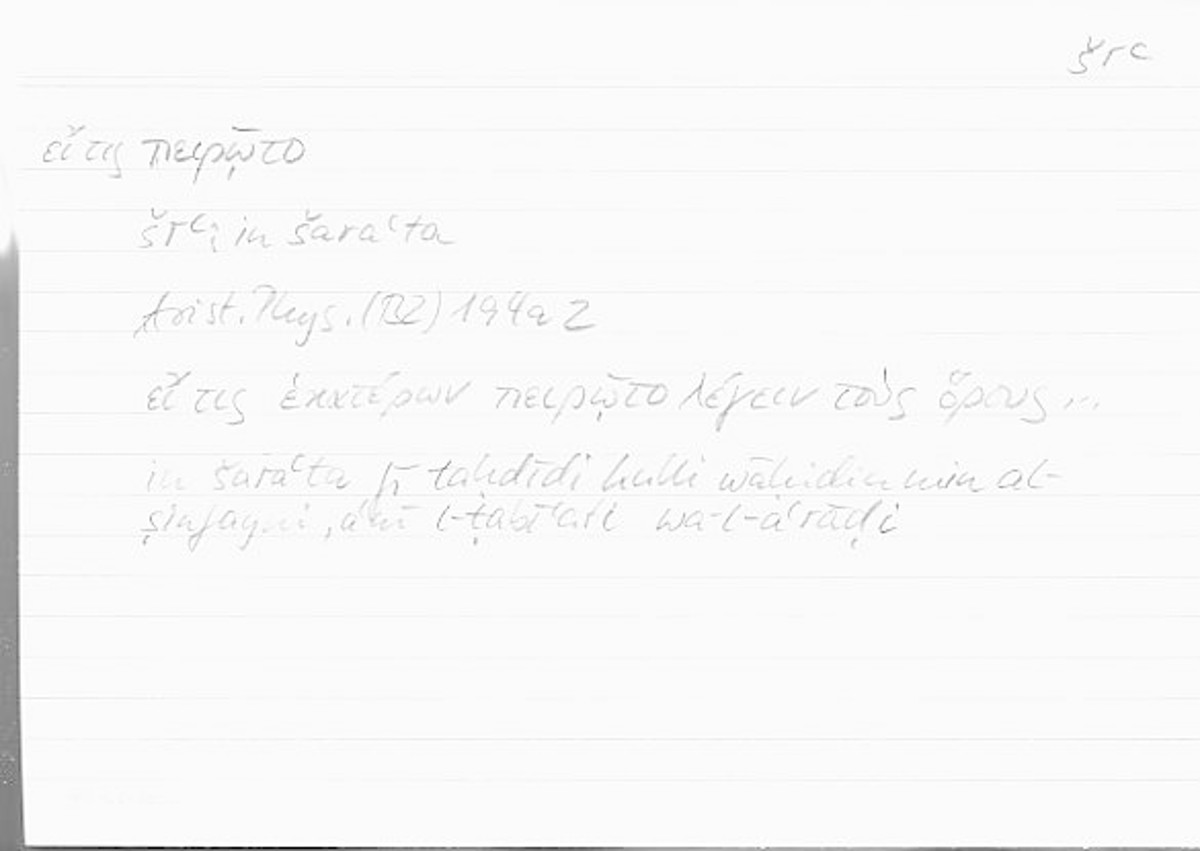 šrʿ
εἴ τις πειρῷτο
šrʿ; in šaraʿta
Arist. Phys. (B2) 194a2
εἴ τις ἑκατέρων πειρῷτο λέγειν τοὺς ὅρους ...
in šaraʿta fī taḥdīdi kulli wāḥidin min al-
ṣinfayni, aʿnī l-ṭabīʿati wa-l-aʿrāḍi